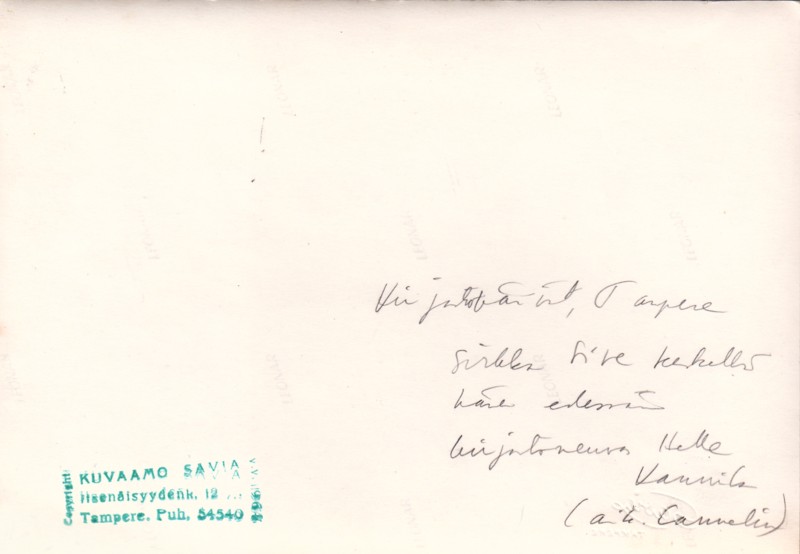 Kirjastopäivät, Tampere
Sirkka Sive keskellä
hänen edessään
kirjastoneuvos Helle
Kannila
(a.k. Cannelin)
Copyright:
KUVAAMO SAVIA
Itsenäisyydenk. 12
Tampere. Puh. 54540